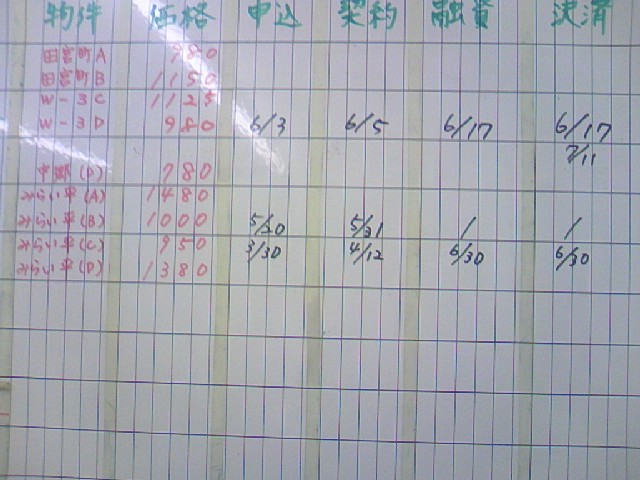 物件 価格 申込 契約 融資 決済
田宮町A 980
田宮町B 1150
W-3C 1125
W-3D 980 6/3 6/5 6/17 6/17
7/11
中郷(D) 780
みらい平(A) 1480
みらい平(B) 1000 5/20 5/21 / /
みらい平(C) 950 3/30 4/12 6/30 6/30
みらい平(D) 1380